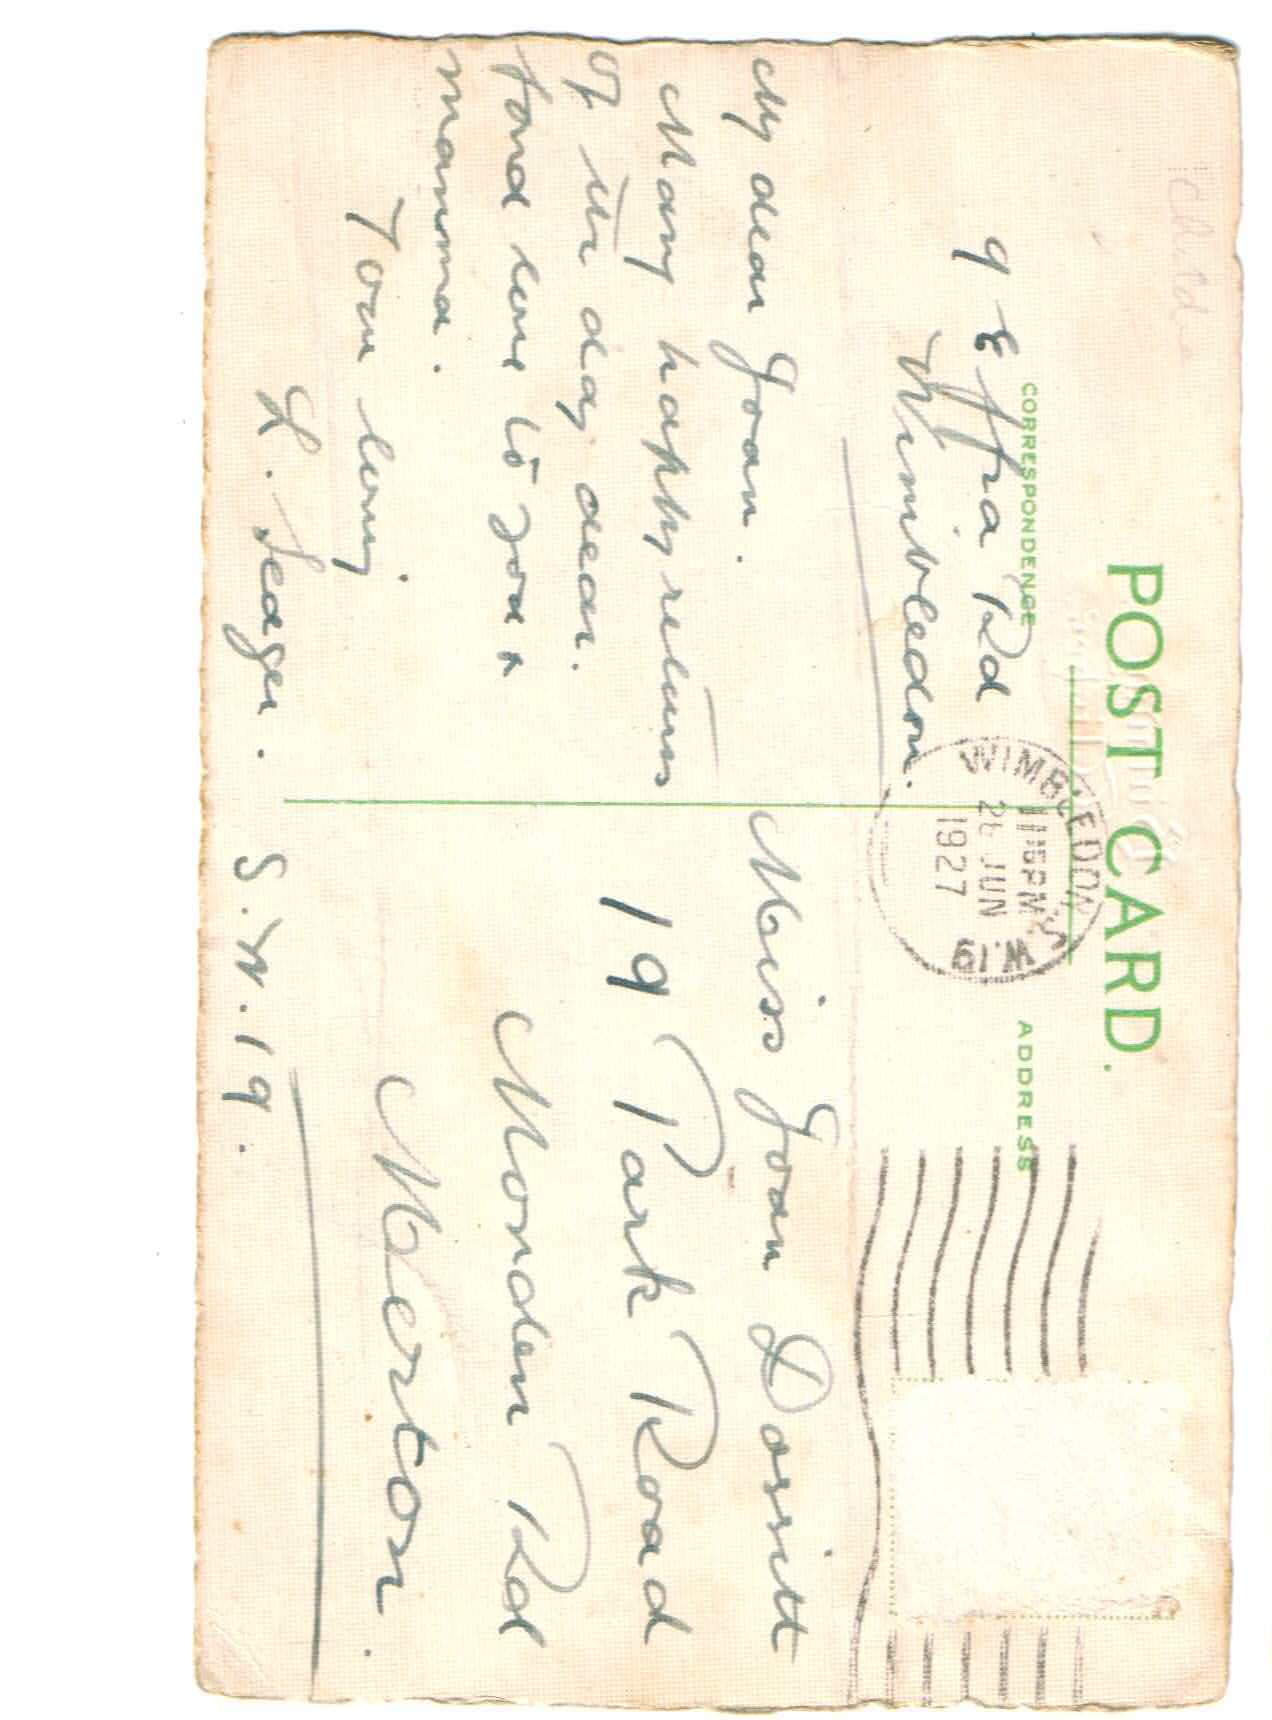 POST CARD.
CORRESPONDENCE
ADDRESS
WIMBLEDON S.W.19
1115PM
26 JUN
1927
9 Effra Rd
Wimbledon.
My dear Joan.
Many happy returns
of the day dear.
fond love to you +
mamma.
Your loving
L. Seager.
Miss Joan Dorsitt
19 Park Road
Morden Rd
Merton.
S.W.19.